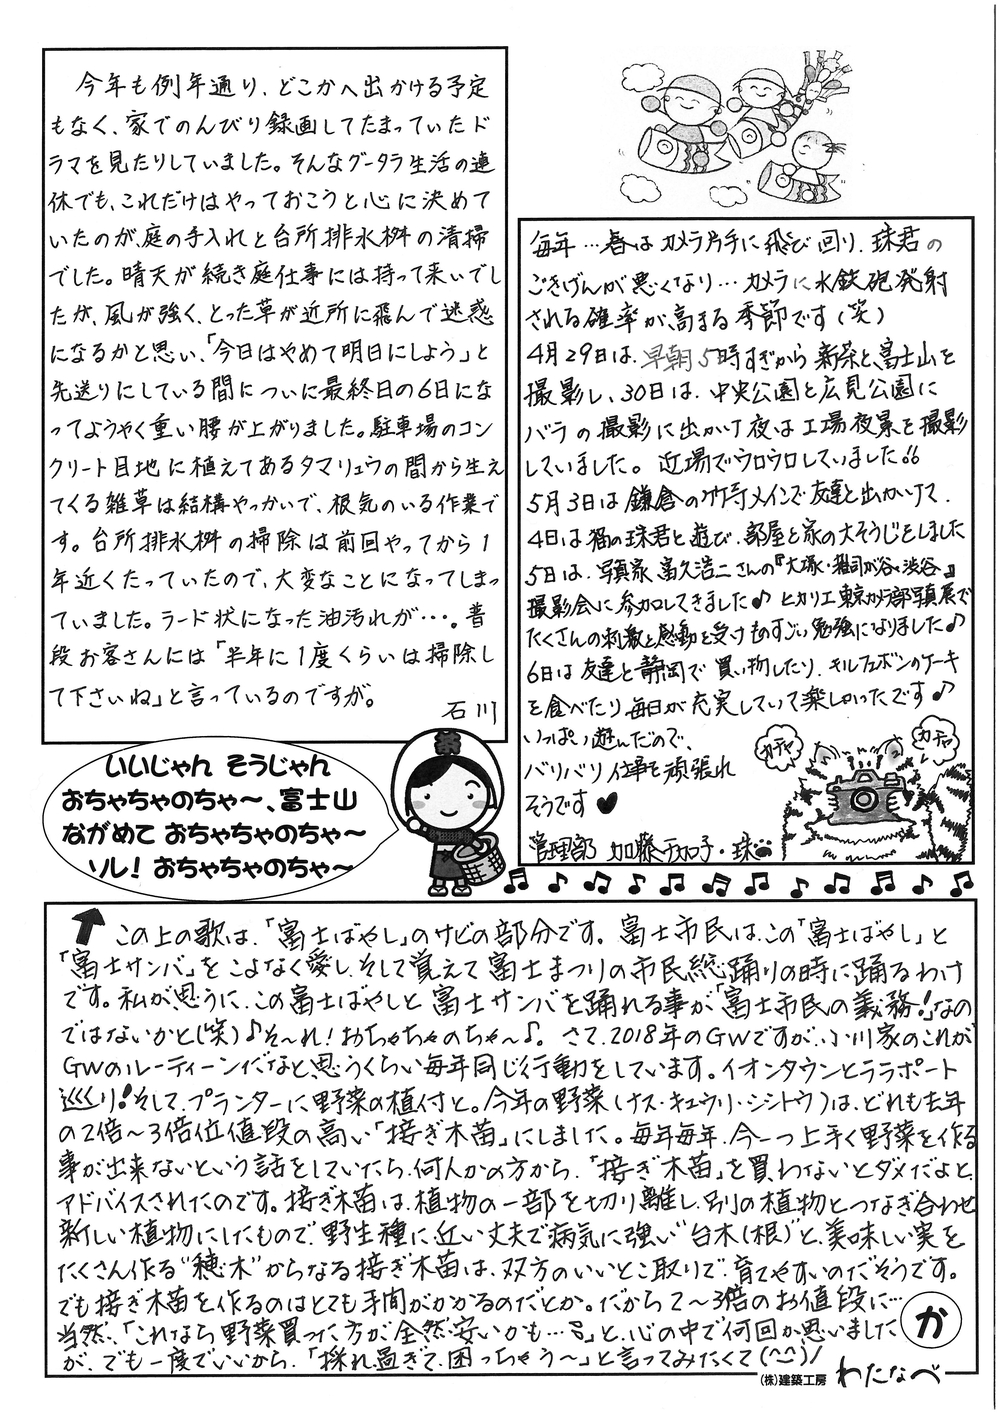 今年も例年通り、どこかへ出かける予定
もなく、家でのんびり録画してたまっていたド
ラマを見たりしていました。そんなグータラ生活の連
休でも、これだけはやっておこうと心に決めて
いたのが、庭の手入れと台所排水桝の清掃
でした。晴天が続き庭仕事には持って来いでし
たが、風が強く、とった草が近所に飛んで迷惑
になるかと思い、「今日はやめて明日にしよう」と
先送りにしている間についに最終日の6日にな
ってようやく重い腰が上がりました。駐車場のコン
クリート目地に植えてあるタマリュウの間から生え
てくる雑草は結構やっかいで、根気のいる作業で
す。台所排水桝の掃除は前回やってから1
年近くたっていたので、大変なことになってしまっ
ていました。ラード状になった油汚れが・・・。普
段お客さんには「半年に1度くらいは掃除し
て下さいね」と言っているのですが。
石川
毎年…春はカメラ片手に飛び回り、珠君の
ごきげんが悪くなり…カメラに水鉄砲発射
される確率が高まる季節です(笑)
4月29日は、早朝5時すぎから新茶と富士山を
撮影し、30日は、中央公園と広見公園に
バラの撮影に出かけ夜は工場夜景を撮影
していました。近場でウロウロしていました!!
5月3日は鎌倉の竹寺メインで友達と出かけて、
4日は猫の珠君と遊び、部屋と家の大そうじをしました
5日は、写真家富久浩二さんの『大塚・雑司が谷・渋谷』
撮影会に参加してきました♪ ヒカリエ東京カメラ部写真展で
たくさんの刺激と感動を受けものすごい勉強になりました♪
6日は友達と静岡で買い物したり、キルフェボンのケーキ
を食べたり毎日が充実していて楽しかったです♪
いっぱい遊んだので、
バリバリ仕事を頑張れ
そうです♥
管理部 加藤千加子・珠
カチャ
カチャ
茶
いいじゃん そうじゃん
おちゃちゃのちゃ〜、富士山
ながめて おちゃちゃのちゃ〜
ソレ！おちゃちゃのちゃ〜
この上の歌は、「富士ばやし」のサビの部分です。富士市民は、この「富士ばやし」と
「富士サンバ」をこよなく愛し、そして覚えて富士まつりの市民総踊りの時に踊るわけ
です。私が思うに、この富士ばやしと富士サンバを踊れる事が「富士市民の義務!」なの
ではないかと(笑)♪そ〜れ!おちゃちゃのちゃ〜♪。さて、2018年のGWですが、小川家のこれが
GWのルーティーンだなと思うくらい毎年同じ行動をしています。イオンタウンとララポート
巡り!そして、プランターに野菜の植付と。今年の野菜(ナス・キュウリ・シシトウ)は、どれも去年
の2倍〜3倍位値段の高い「接ぎ木苗」にしました。毎年毎年、今一つ上手く野菜を作る
事が出来ないという話をしていたら、何人かの方から、「接ぎ木苗」を買わないとダメだよと、
アドバイスされたのです。接ぎ木苗は、植物の一部を切り離し、別の植物とつなぎ合わせ
新しい植物にしたもので、野生種に近い丈夫で病気に強い“台木(根)”と、美味しい実を
たくさん作る“穂木”からなる接ぎ木苗は、双方のいいとこ取りで、育てやすいのだそうです。
でも接ぎ木苗を作るのはとても手間がかかるのだとか。だから2〜3倍のお値段に…
当然、「これなら野菜買った方が全然安いかも…」と、心の中で何回か思いました
が、でも一度でいいから、「採れ過ぎて、困っちゃう〜」と言ってみたくて(^^)/
か
(株)建築工房 わたなべ